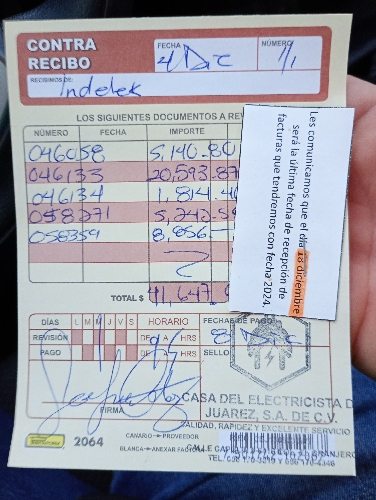 CONTRA
RECIBO
FECHA
4 Dic
NÚMERO
1/1
RECIBIMOS DE:
Indelek
LOS SIGUIENTES DOCUMENTOS A REV
NÚMERO FECHA IMPORTE
046058 5,140.80
046133 20,593.87
046134 1,814.40
058271 5,242.5
058359 8,856.-
TOTAL $ 41,647.9
Les comunicamos que el día 18 diciembre
será la última fecha de recepción de
facturas que tendremos con fecha 2024.
DÍAS L M M J V S HORARIO
REVISIÓN DE A HRS
PAGO DE A HRS
FECHA DE PAGO
8 Dic
SELLO
FIRMA
CASA DEL ELECTRICISTA D
JUAREZ, S.A. DE C.V.
CALIDAD, RAPIDEZ Y EXCELENTE SERVICIO
2064
CANARIO - PROVEEDOR
BLANCA - ANEXAR FACTURA